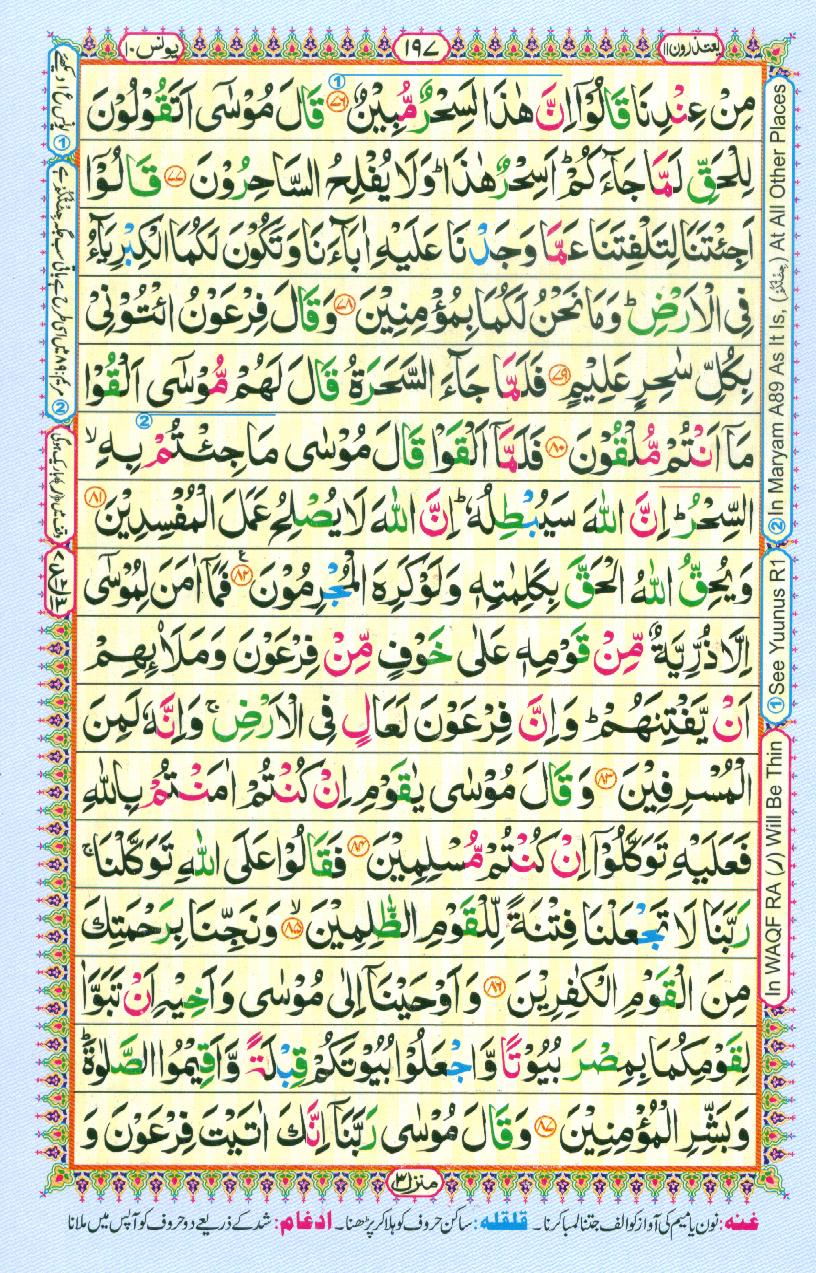 یعتذرون۱۱
۱۹۷
یونس۱۰
مِنْ عِنْدِنَا قَالُوْۤا اِنَّ هٰذَا لَسِحْرٌ مُّبِیْنٌ ﴿۷۶﴾ قَالَ مُوْسٰۤی اَتَقُوْلُوْنَ
لِلْحَقِّ لَمَّا جَآءَكُمْ ؕ اَسِحْرٌ هٰذَا ؕ وَلَا یُفْلِحُ السّٰحِرُوْنَ ﴿۷۷﴾ قَالُوْۤا
اَجِئْتَنَا لِتَلْفِتَنَا عَمَّا وَجَدْنَا عَلَیْهِ اٰبَآءَنَا وَتَكُوْنَ لَكُمَا الْكِبْرِیَآءُ
فِی الْاَرْضِ ؕ وَمَا نَحْنُ لَكُمَا بِمُؤْمِنِیْنَ ﴿۷۸﴾ وَقَالَ فِرْعَوْنُ ائْتُوْنِیْ
بِكُلِّ سٰحِرٍ عَلِیْمٍ ﴿۷۹﴾ فَلَمَّا جَآءَ السَّحَرَةُ قَالَ لَهُمْ مُّوْسٰۤی اَلْقُوْا
مَاۤ اَنْتُمْ مُّلْقُوْنَ ﴿۸۰﴾ فَلَمَّاۤ اَلْقَوْا قَالَ مُوْسٰی مَا جِئْتُمْ بِهِ ۙ
السِّحْرُ ؕ اِنَّ اللّٰهَ سَیُبْطِلُهٗ ؕ اِنَّ اللّٰهَ لَا یُصْلِحُ عَمَلَ الْمُفْسِدِیْنَ ﴿۸۱﴾
وَیُحِقُّ اللّٰهُ الْحَقَّ بِكَلِمٰتِهٖ وَلَوْ كَرِهَ الْمُجْرِمُوْنَ ﴿۸۲﴾ ع فَمَاۤ اٰمَنَ لِمُوْسٰۤی
اِلَّا ذُرِّیَّةٌ مِّنْ قَوْمِهٖ عَلٰی خَوْفٍ مِّنْ فِرْعَوْنَ وَمَلَا۠ئِهِمْ
اَنْ یَّفْتِنَهُمْ ؕ وَاِنَّ فِرْعَوْنَ لَعَالٍ فِی الْاَرْضِ ۚ وَاِنَّهٗ لَمِنَ
الْمُسْرِفِیْنَ ﴿۸۳﴾ وَقَالَ مُوْسٰی یٰقَوْمِ اِنْ كُنْتُمْ اٰمَنْتُمْ بِاللّٰهِ
فَعَلَیْهِ تَوَكَّلُوْۤا اِنْ كُنْتُمْ مُّسْلِمِیْنَ ﴿۸۴﴾ فَقَالُوْا عَلَی اللّٰهِ تَوَكَّلْنَا ۚ
رَبَّنَا لَا تَجْعَلْنَا فِتْنَةً لِّلْقَوْمِ الظّٰلِمِیْنَ ﴿۸۵﴾ ۙ وَنَجِّنَا بِرَحْمَتِكَ
مِنَ الْقَوْمِ الْكٰفِرِیْنَ ﴿۸۶﴾ وَاَوْحَیْنَاۤ اِلٰی مُوْسٰی وَاَخِیْهِ اَنْ تَبَوَّاٰ
لِقَوْمِكُمَا بِمِصْرَ بُیُوْتًا وَّاجْعَلُوْا بُیُوْتَكُمْ قِبْلَةً وَّاَقِیْمُوا الصَّلٰوةَ ؕ
وَبَشِّرِ الْمُؤْمِنِیْنَ ﴿۸۷﴾ وَقَالَ مُوْسٰی رَبَّنَاۤ اِنَّكَ اٰتَیْتَ فِرْعَوْنَ وَ
منزل ۳
غنہ: نون یا میم کی آواز کو الف جتنا لمبا کرنا۔ قلقلہ: ساکن حروف کو ہلا کر پڑھنا۔ ادغام: شد کے ذریعے دو حروف کو آپس میں ملانا
① See Yuunus R1 ② In Maryam A89 As It Is, (جِئْتُمْ) At All Other Places
In WAQF RA (ر) Will Be Thin